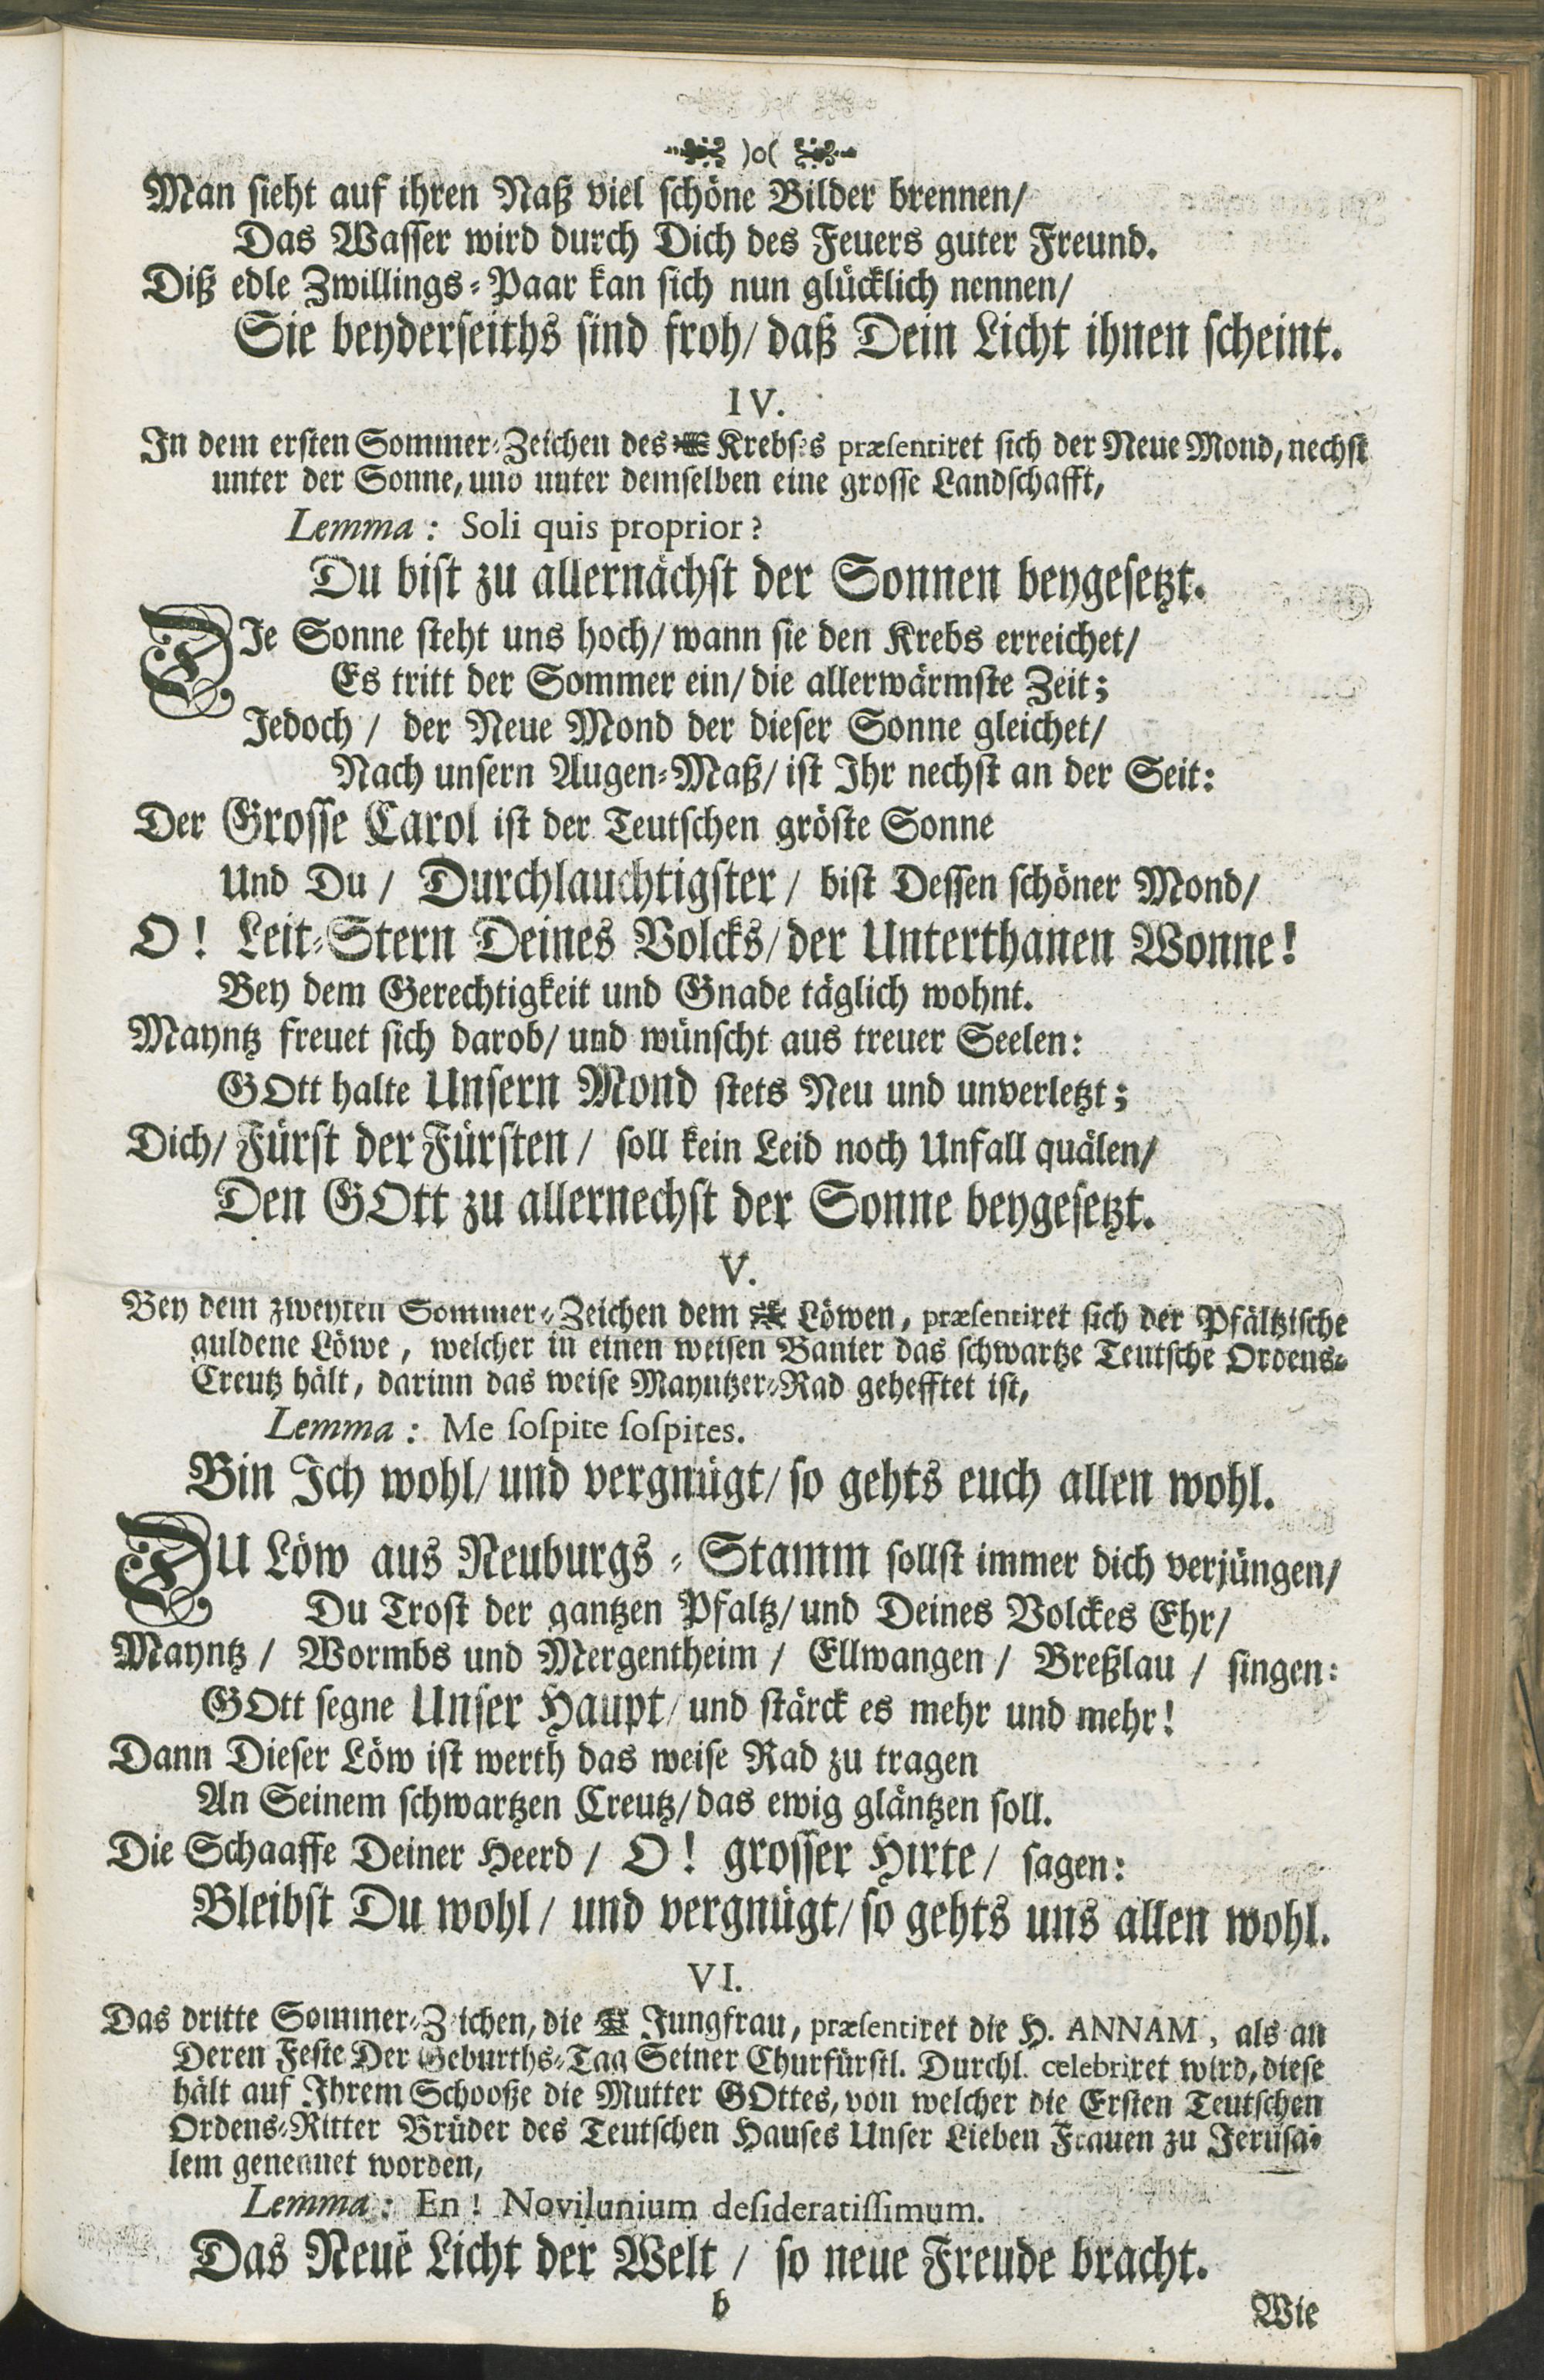 )o(
Man sieht auf ihren Naß viel schöne Bilder brennen/
Das Wasser wird durch Dich des Feuers guter Freund.
Diß edle Zwillings-Paar kan sich nun glücklich nennen/
Sie beyderseiths sind froh/ daß Dein Licht ihnen scheint.
IV.
In dem ersten Sommer-Zeichen des ♋ Krebses præsentiret sich der Neue Mond, nechst
unter der Sonne, und unter demselben eine grosse Landschafft,
Lemma: Soli quis proprior?
Du bist zu allernächst der Sonnen beygesetzt.
DIe Sonne steht uns hoch/ wann sie den Krebs erreichet/
Es tritt der Sommer ein/ die allerwärmste Zeit;
Jedoch / der Neue Mond der dieser Sonne gleichet/
Nach unsern Augen-Maß/ ist Ihr nechst an der Seit:
Der Grosse Carol ist der Teutschen gröste Sonne
Und Du / Durchlauchtigster / bist Dessen schöner Mond/
O! Leit-Stern Deines Volcks/ der Unterthanen Wonne!
Bey dem Gerechtigkeit und Gnade täglich wohnt.
Mayntz freuet sich darob/ und wünscht aus treuer Seelen:
GOtt halte Unsern Mond stets Neu und unverletzt;
Dich/ Fürst der Fürsten / soll kein Leid noch Unfall quälen/
Den GOtt zu allernechst der Sonne beygesetzt.
V.
Bey dem zweyten Sommer-Zeichen dem ♌ Löwen, præsentiret sich der Pfältzische
guldene Löwe, welcher in einen weisen Banier das schwartze Teutsche Ordens-
Creutz hält, darinn das weise Mayntzer-Rad gehefftet ist,
Lemma: Me sospite sospites.
Bin Ich wohl/ und vergnügt/ so gehts euch allen wohl.
DU Löw aus Neuburgs-Stamm sollst immer dich verjüngen/
Du Trost der gantzen Pfaltz/ und Deines Volckes Ehr/
Mayntz / Wormbs und Mergentheim / Ellwangen / Breßlau / singen:
GOtt segne Unser Haupt/ und stärck es mehr und mehr!
Dann Dieser Löw ist werth das weise Rad zu tragen
An Seinem schwartzen Creutz/ das ewig gläntzen soll.
Die Schaaffe Deiner Heerd / O! grosser Hirte / sagen:
Bleibst Du wohl / und vergnügt/ so gehts uns allen wohl.
VI.
Das dritte Sommer-Zeichen, die ♍ Jungfrau, præsentiret die H. ANNAM, als an
Deren Feste Der Geburths-Tag Seiner Churfürstl. Durchl. celebriret wird, diese
hält auf Ihrem Schooße die Mutter GOttes, von welcher die Ersten Teutschen
Ordens-Ritter Brüder des Teutschen Hauses Unser Lieben Frauen zu Jerusa-
lem genennet worden,
Lemma: En! Novilunium desideratissimum.
Das Neue Licht der Welt / so neue Freude bracht.
b
Wie